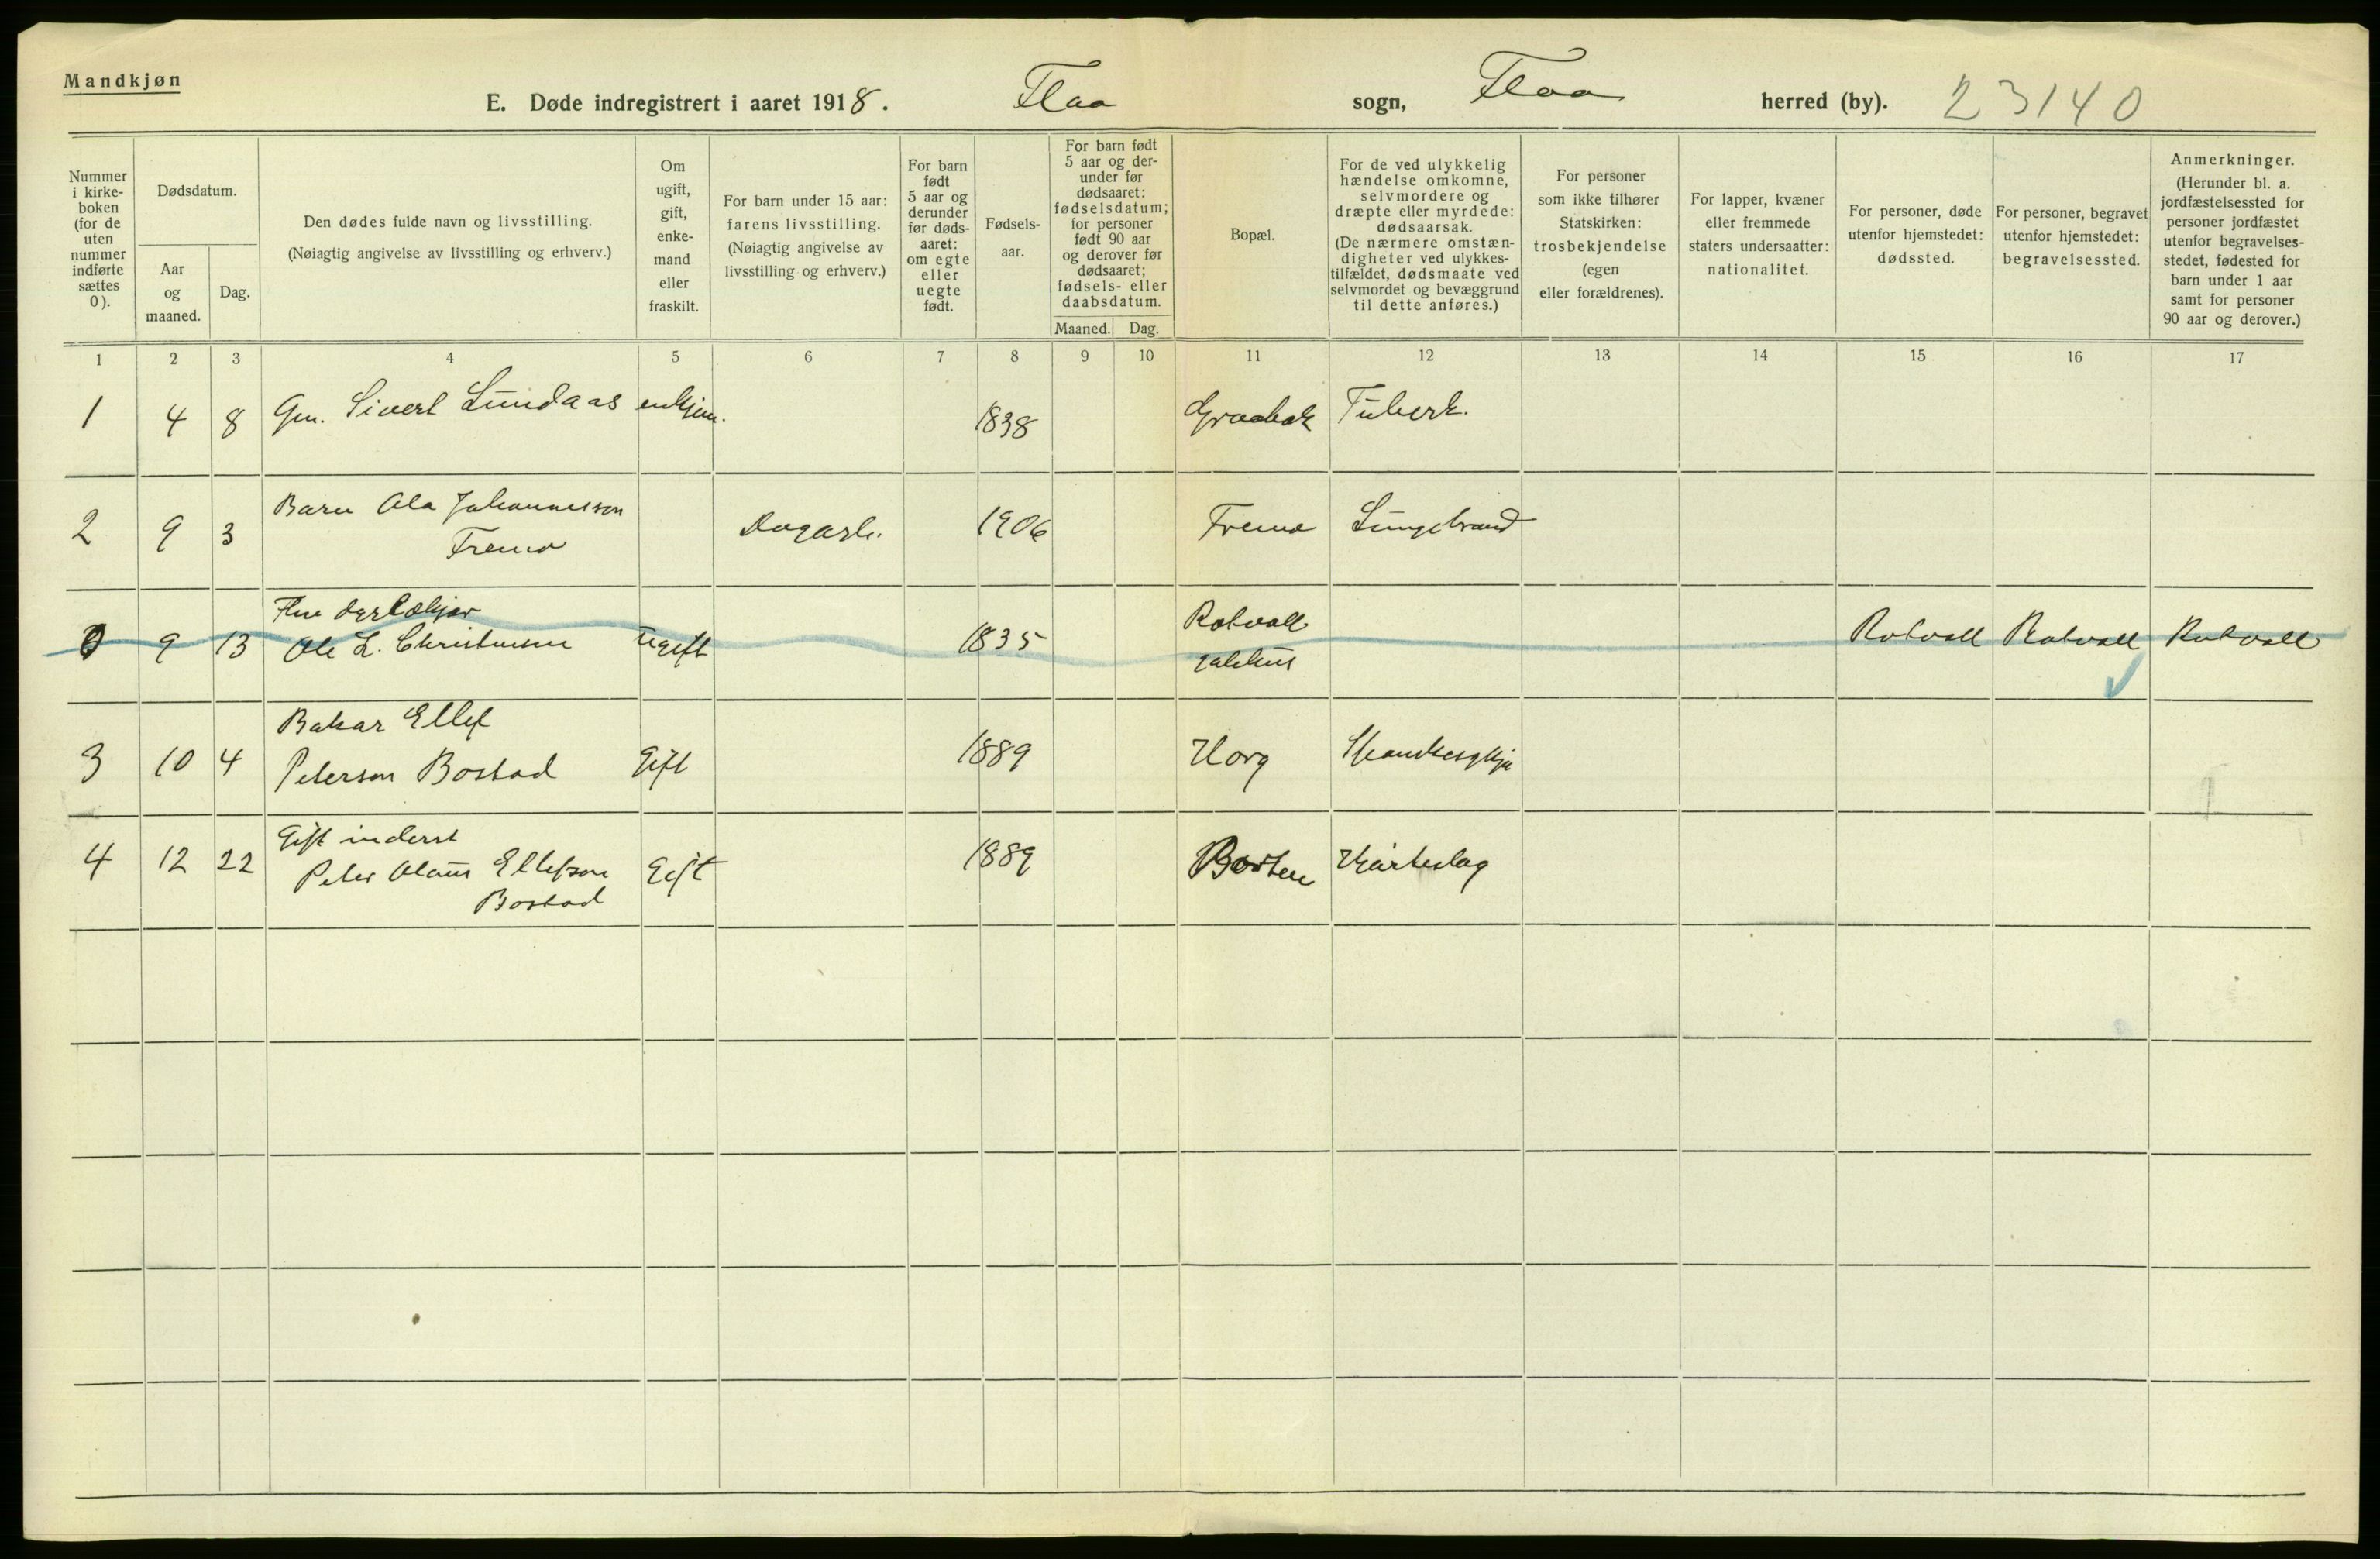 Mandkjøn
E. Døde indregistrert i aaret 1918. Flaa sogn, Flaa herred (by). 23140
Nummer
i kirke-
boken
(for de
uten
nummer
indførte
sættes
0).
Dødsdatum.
Aar
og
maaned.
Dag.
Den dødes fulde navn og livsstilling.
(Nøiagtig angivelse av livsstilling og erhverv.)
Om
ugift,
gift,
enke-
mand
eller
fraskilt.
For barn under 15 aar:
farens livsstilling.
(Nøiagtig angivelse av
livsstilling og erhverv.)
For barn
født
5 aar og
derunder
før døds-
aaret:
om egte
eller
uegte
født.
Fødsels-
aar.
For barn født
5 aar og der-
under før
dødsaaret:
fødselsdatum;
for personer
født 90 aar
og derover før
dødsaaret;
fødsels- eller
daabsdatum.
Maaned. Dag.
Bopæl.
For de ved ulykkelig
hændelse omkomne,
selvmordere og
dræpte eller myrdede:
dødsaarsak.
(De nærmere omstæn-
digheter ved ulykkes-
tilfældet, dødsmaate ved
selvmordet og bevæggrund
til dette anføres.)
For personer
som ikke tilhører
Statskirken:
trosbekjendelse
(egen
eller forældrenes).
For lapper, kvæner
eller fremmede
staters undersaatter:
nationalitet.
For personer, døde
utenfor hjemstedet:
dødssted.
For personer, begravet
utenfor hjemstedet:
begravelsessted.
Anmerkninger.
(Herunder bl. a.
jordfæstelsessted for
personer jordfæstet
utenfor begravelses-
stedet, fødested for
barn under 1 aar
samt for personer
90 aar og derover.)
1 2 3 4 5 6 7 8 9 10 11 12 13 14 15 16 17
1 4 8 Gm. Sivert Lundaas enkjem. 1838 Graabak Tuberk.
2 9 3 Barn Ola Johannesson
Fremo Dagarb. 1906 Fremo Lungebrand
0 9 13
Ole L. Christensen Ugift 1835 Rotvoll Rotvoll Rotvoll Rotvoll
3 10 4 Bakar Ellef
Peterson Bostad Gift 1889 Horg
4 12 22 Gift inderst
Peter Olaus Ellefson
Bostad Gift 1889 Borten Hjarteslag